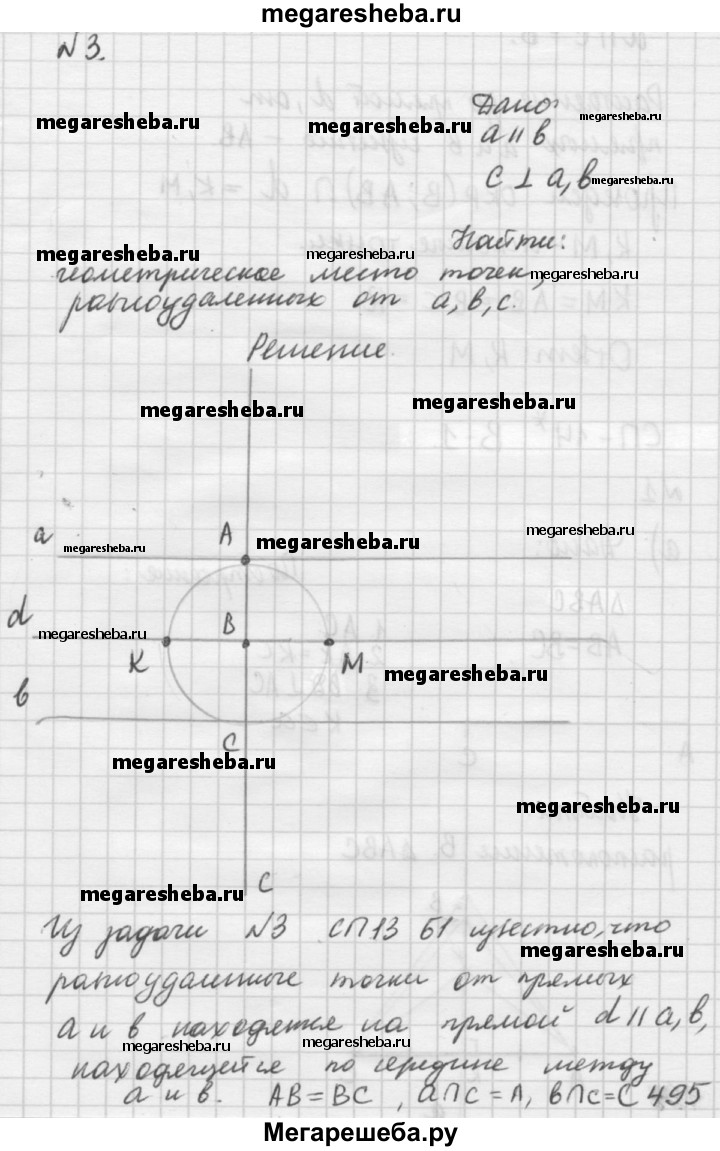 megaresheba.ru
№3.
Дано:
megaresheba.ru megaresheba.ru megaresheba.ru
a || b
c ⊥ a, b megaresheba.ru
Найти:
megaresheba.ru
геометрическое место точек, megaresheba.ru
равноудаленных от a, b, c.
Решение.
megaresheba.ru megaresheba.ru
a megaresheba.ru A megaresheba.ru megaresheba.ru
d megaresheba.ru B
K M megaresheba.ru
b
C
megaresheba.ru
megaresheba.ru
megaresheba.ru C
Из задачи №3 СП13 Б1 известно, что
megaresheba.ru
равноудаленные точки от прямых
a и b находятся на прямой d || a, b,
megaresheba.ru megaresheba.ru
находящейся по середине между
a и b. AB = BC , a∩c = A, b∩c = C 495
Мегарешеба.ру